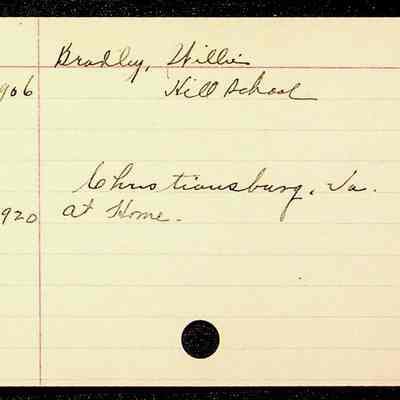 Bradley, Willie
906 Hill School
Christiansburg, Va.
920 at Home.